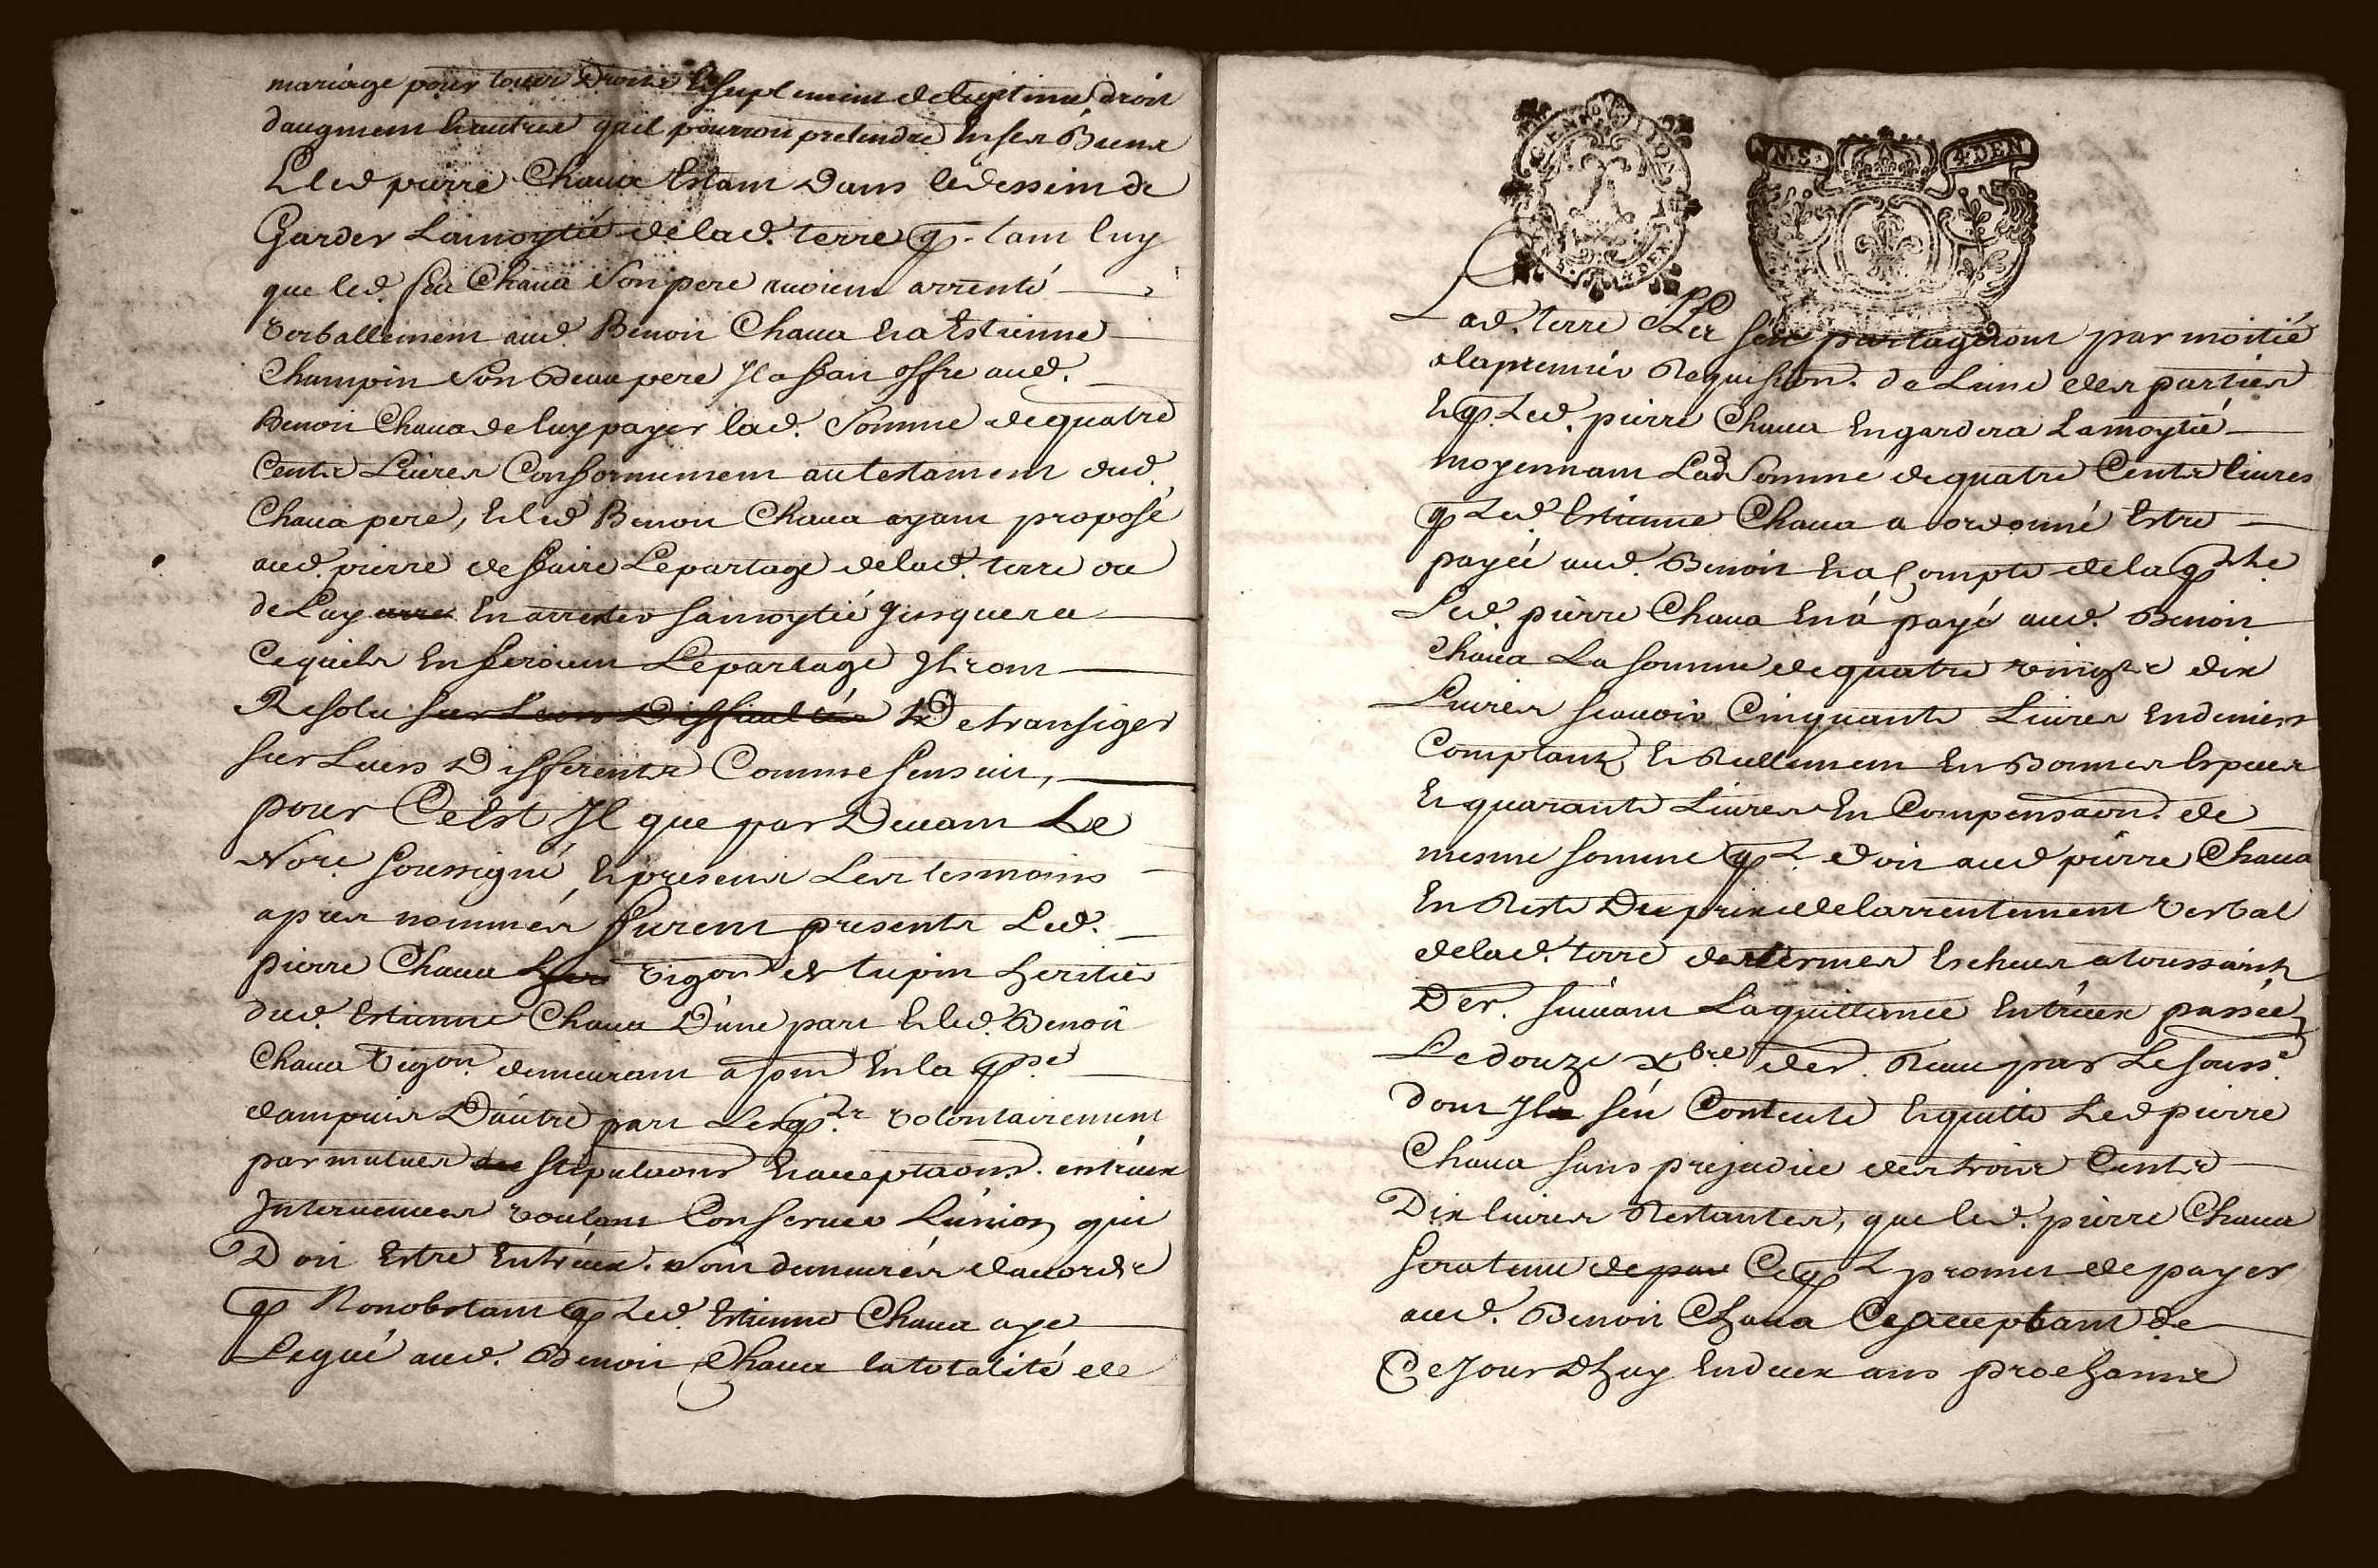 mariage pour tous droits & suplement de legitime droit
daugment & autres quil pourroit pretendre en ses Biens
& led pierre Chaua Estant dans le dessein de
Garder Lamoytié delad. terre q. tant luy
que led. feu Chaua Son pere auoient arrenté
verballement aud. Benoit Chaua & a Estienne
Champin Son Beaupere Il a fait offre aud.
Benoit Chaua de luy payer lad. Somme de quatre
Cents Liures Conformement au testament dud.
Chaua pere, & led Benoit Chaua ayant proposé
aud. pierre de faire Le partage delad. terre ou
de Luy En arrenter Samoytié Jusques a
Ce quils En feroient Le partage Ils ont
Resolu sur Leurs Difficultés De transiger
sur Leurs Differents Comme sensuit,
pour Ce Est Il que par Deuant Le
Nore. soussigné, & presents Les tesmoins
apres nommés furent presents Led.
pierre Chaua vigon de tupin heritier
dud. Estienne Chaua D'une part & led. Benoit
Chaua Vigon. demeurant a En la
dampuis D'autre part Lesq.ls volontairement
par mutues stipulaons & acceptaons. entreux
Interuenues voulant Conseruer L'union qui
Doit Estre Entreux. Sont demeurés dacord
q Nonobstant q Led. Estienne Chaua aye
Legué aud. Benoit Chaua la totalité de
GEN DE LION
4. DEN
MS.
4. DEN
Lad. terre Elle sera partageront par moitié
a la premiere Requisition. de L'une des parties
& q Led. pierre Chaua En gardera Lamoytié
moyennant Lad Somme de quatre Cents liures
q Led. Estienne Chaua a ordonné Estre
payée aud. Benoit & a Compte de la q.lle
Led. pierre Chaua En a payé aud. Benoit
Chaua La somme de quatre vingts dix
Liures scauoir Cinquante Liures En deniers
Comptants & Reellement En Bonnes Especes
& quarante Liures En Compensaon. de
mesme somme q L doit aud pierre Chaua
En Reste Du prix de larrentement verbal
de lad. terre des termes Escheus a toussaints
Der. suiuant La quittance Entreux passée
Le douze xbre der. Receue par Le souss.é
dont Il sen Contente & quitte Led pierre
Chaua sans prejudice des trois Cents
Dix liures Restantes, que led. pierre Chaua
sera tenu de par Ce q L promet de payer
aud. Benoit Chaua Ce acceptant de
Ce Jourdhuy En deux ans prochains